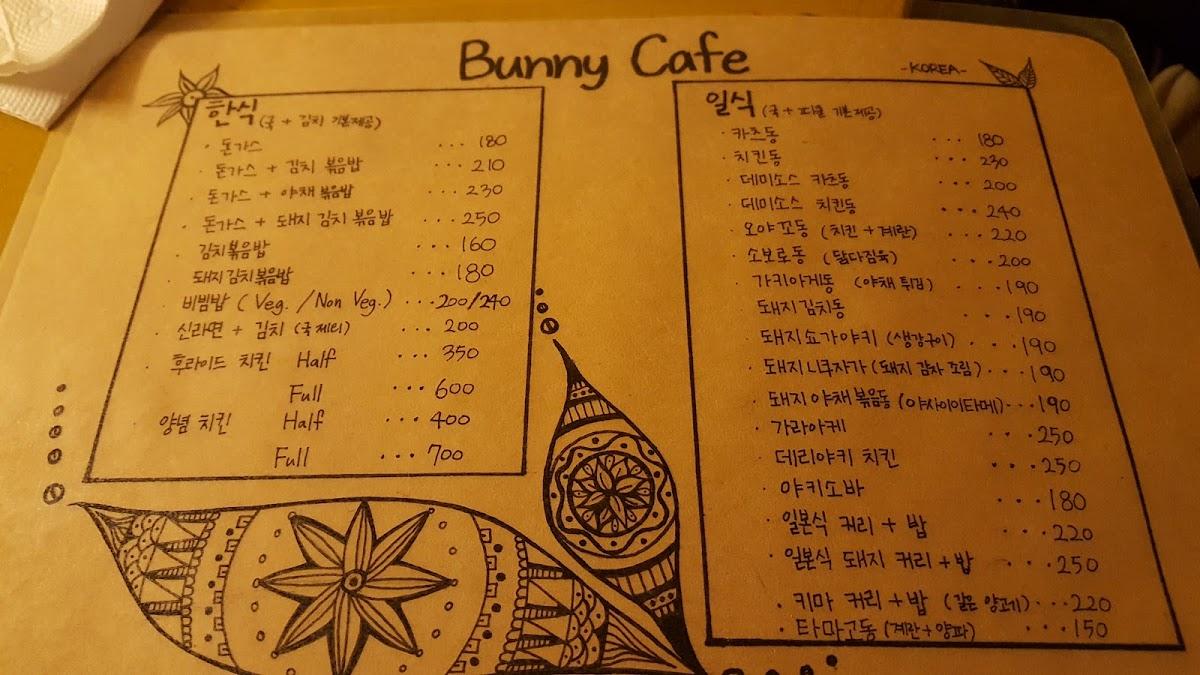 Bunny Cafe
-KOREA-
한식 (국 + 김치 기본제공)
· 돈가스 ... 180
· 돈가스 + 김치 볶음밥 ... 210
· 돈가스 + 야채 볶음밥 ... 230
· 돈가스 + 돼지 김치 볶음밥 ... 250
· 김치볶음밥 ... 160
· 돼지김치볶음밥 ... 180
· 비빔밥 ( Veg. / Non Veg. ) ... 200/240
· 신라면 + 김치 (국 제외) ... 200
· 후라이드 치킨 Half ... 350
Full ... 600
· 양념 치킨 Half ... 400
Full ... 700
일식 (국 + 피클 기본제공)
· 카츠동 ... 180
· 치킨동 ... 230
· 데미소스 카츠동 ... 200
· 데미소스 치킨동 ... 240
· 오야꼬동 (치킨 + 계란) ... 220
· 소보로동 (닭다짐육) ... 200
· 가키아게동 (야채 튀김) ... 190
· 돼지김치동 ... 190
· 돼지쇼가야키 (생강구이) ... 190
· 돼지니쿠자가 (돼지 감자 조림) ... 190
· 돼지 야채볶음동 (야사이이타메) ... 190
· 가라아게 ... 250
· 데리야키 치킨 ... 250
· 야키소바 ... 180
· 일본식 커리 + 밥 ... 220
· 일본식 돼지 커리 + 밥 ... 250
· 키마 커리 + 밥 (갈은 양고기) ... 220
· 타마고동 (계란 + 양파) ... 150